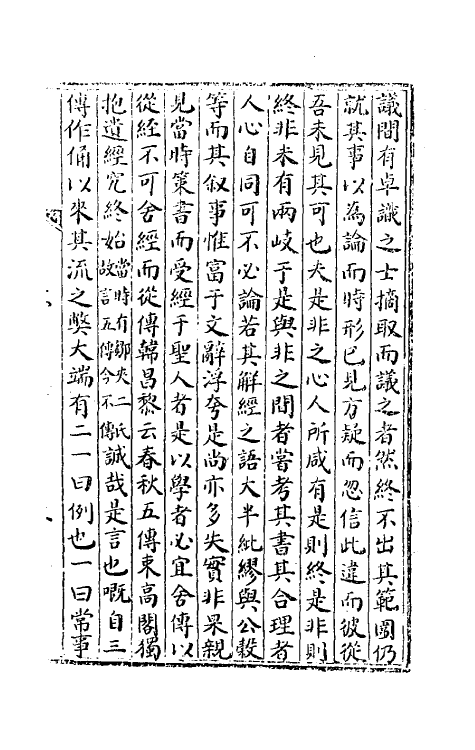 議間有卓識之士摘取而議之者然終不出其範圍仍
就其事以為論而時形已見方疑而忽信此違而彼從
吾未見其可也夫是非之心人所咸有是則終是非則
終非未有兩岐于是與非之間者嘗考其書其合理者
人心自同可不必論若其解經之語大半紕繆與公穀
等而其叙事惟富于文辭浮夸是尚亦多失實非果親
見當時策書而受經于聖人者是以學者必宜舍傳以
從經不可舍經而從傳韓昌黎云春秋五傳東高閣獨
抱遺經究終始當時有鄒夾二氏故言五傳今不傳誠哉是言也嘅自三
傳作俑以來其流之獘大端有二一曰例也一曰常事